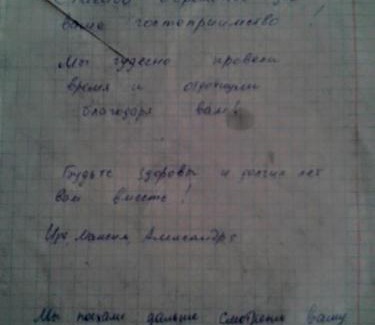 ваше гостоприимство!
Мы чудесно провели
время и отдохнули
благодаря вам!
Будьте здоровы и долгих лет
вам вместе!
Максим, Александра
Мы поехали дальше смотреть вашу